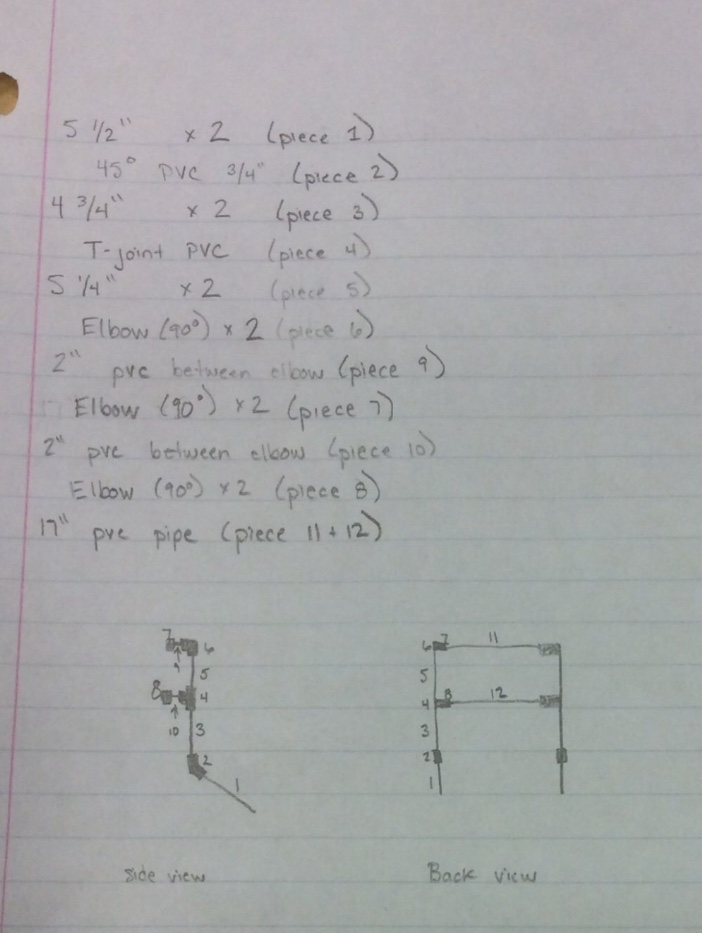 5 1/2" x 2 (piece 1)
45° PVC 3/4" (piece 2)
4 3/4" x 2 (piece 3)
T-joint PVC (piece 4)
5 1/4" x 2 (piece 5)
Elbow (90°) x 2 (piece 6)
2" pvc between elbow (piece 9)
Elbow (90°) x 2 (piece 7)
2" pvc between elbow (piece 10)
Elbow (90°) x 2 (piece 8)
17" pvc pipe (piece 11 + 12)
7 6
9
5
8 4
10 3
2
1
Side view
6 7 11
5
4 8 12
3
2
1
Back view